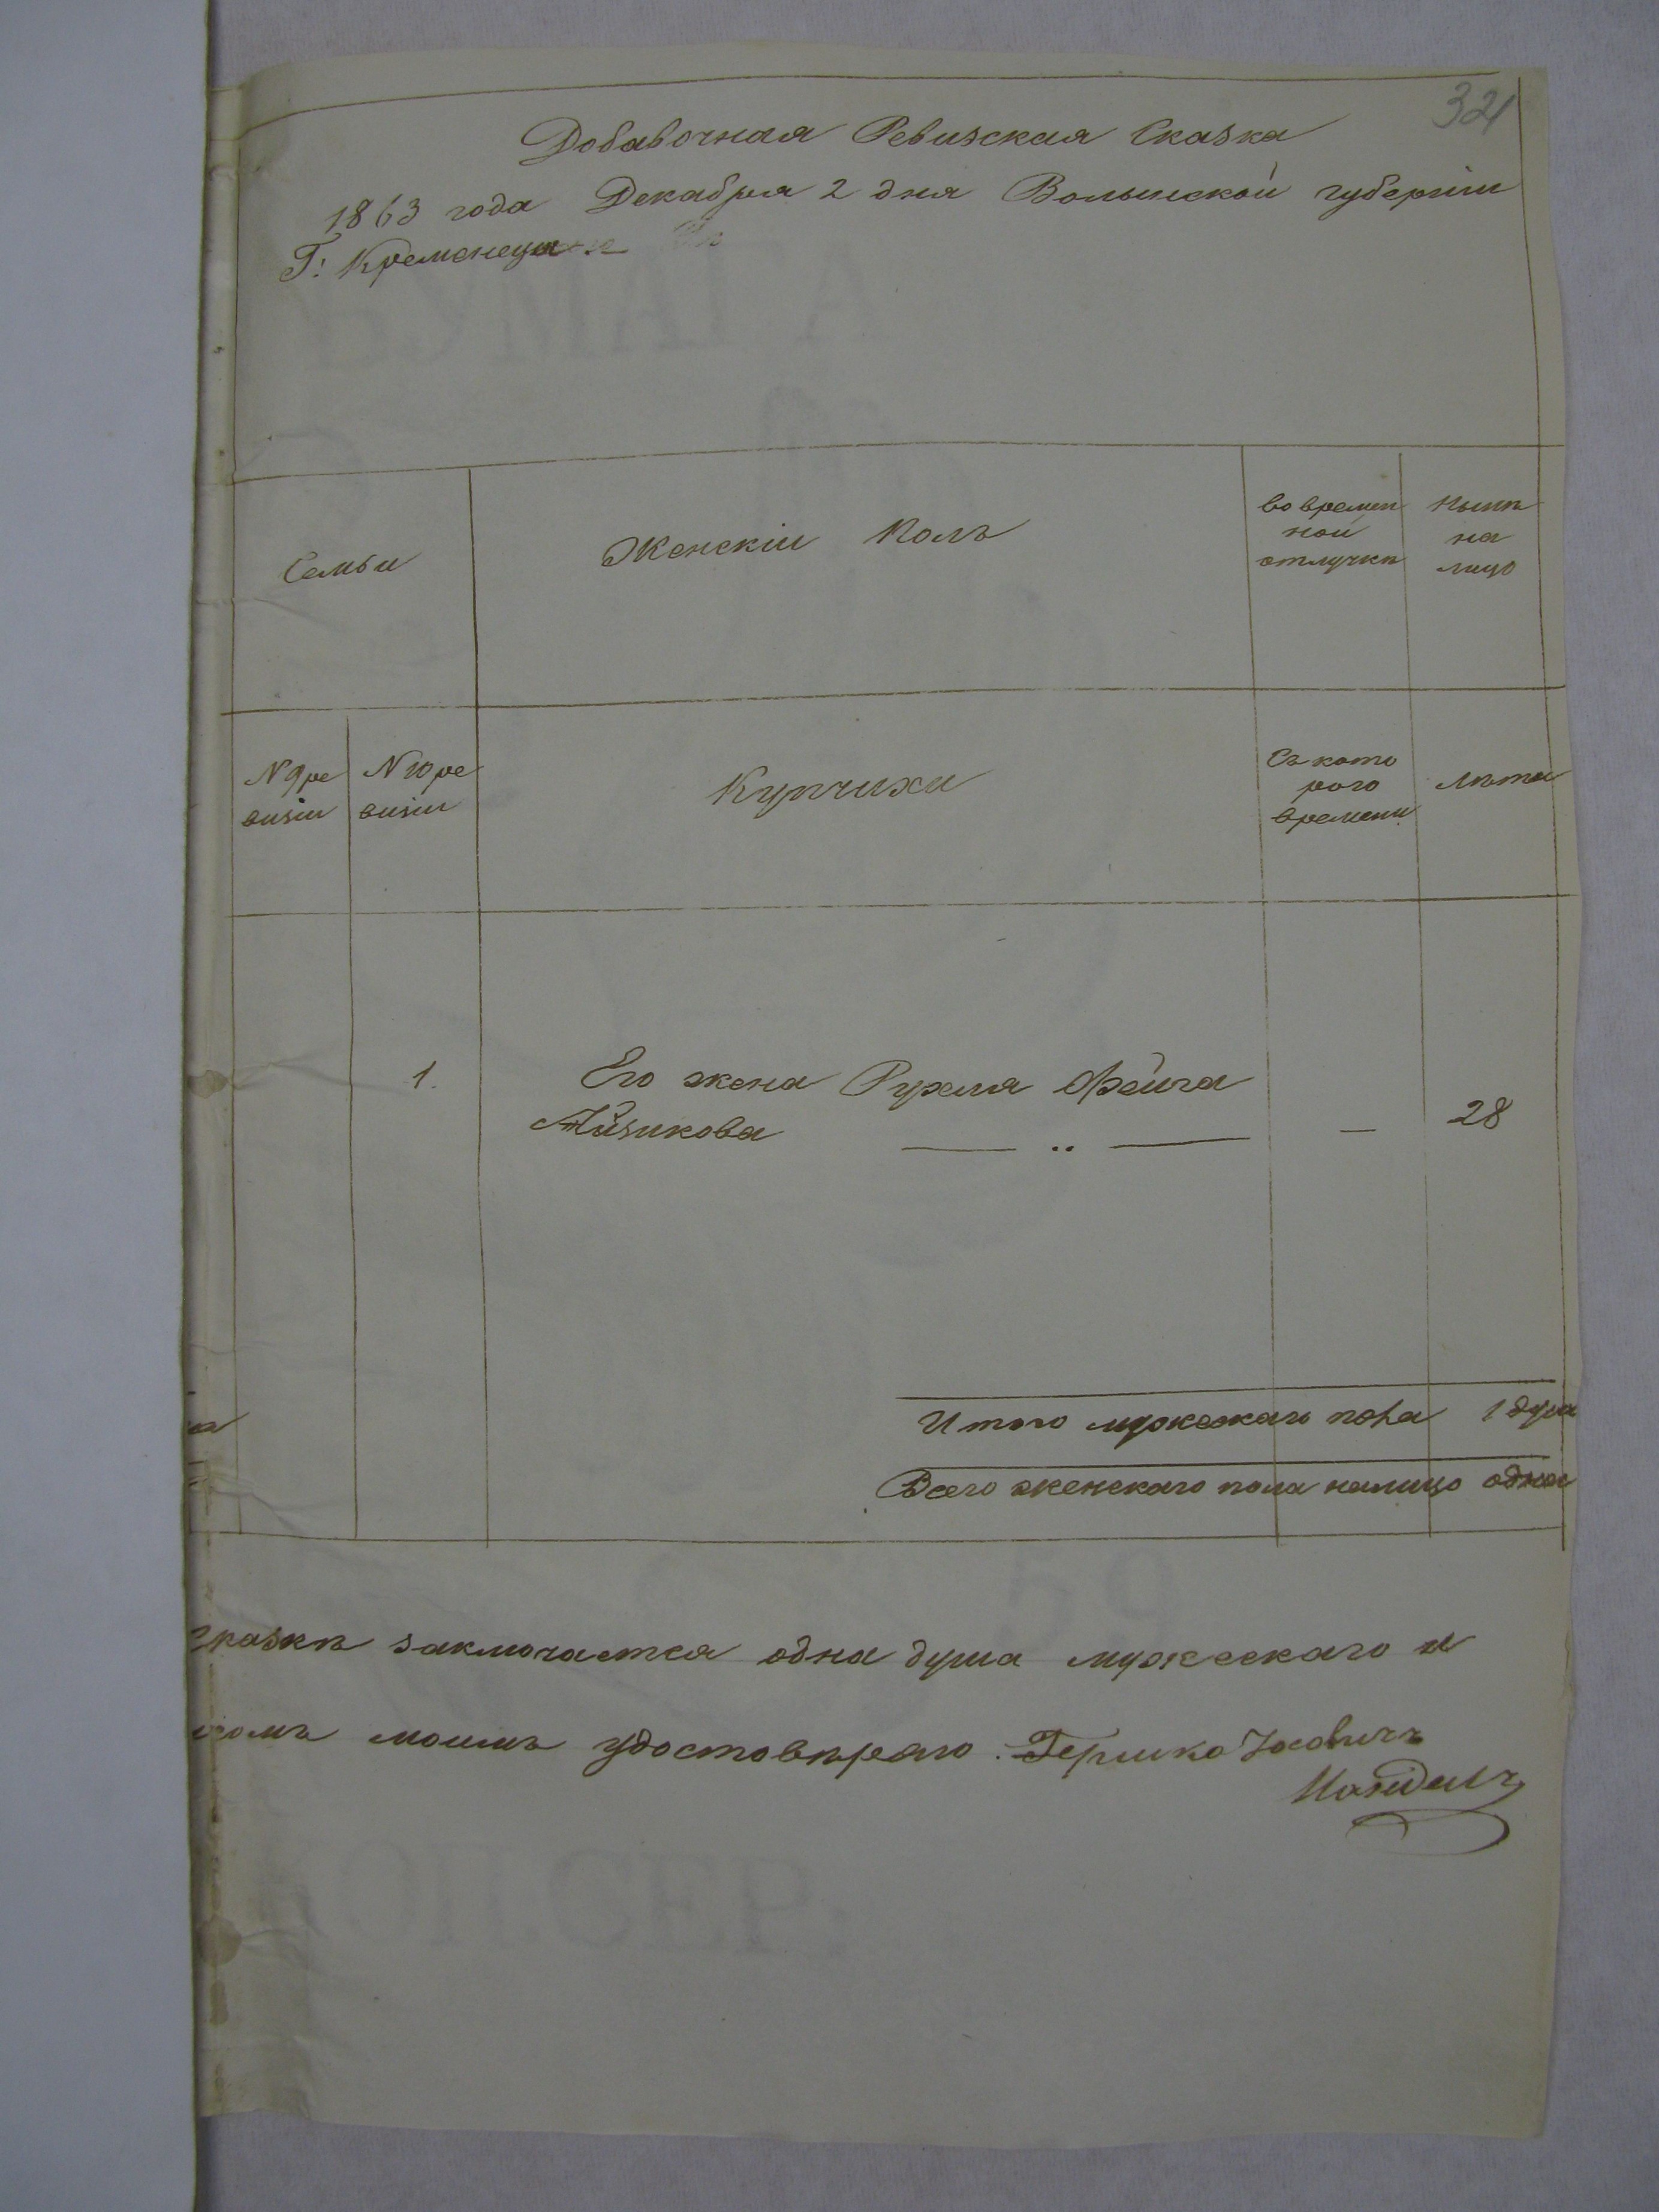 321
Добавочная Ревизская Сказка
1863 года Декабря 2 дня Волынской губерніи
Г: Кременец
Семьи
Женскій Полъ
во времен
ной
отлучкѣ
Нынѣ
на
лицо
N 9 ре
визіи
N 10 ре
визіи
Купчихи
Съ кото
рого
времени
лѣта
1. Его жена Рухля Фейга
Айзикова — 28
Итого мужескаго пола 1 душа
Всего женскаго пола налицо одна
сказкѣ заключается одна душа мужескаго и
моимъ удостовѣряю. Гершко